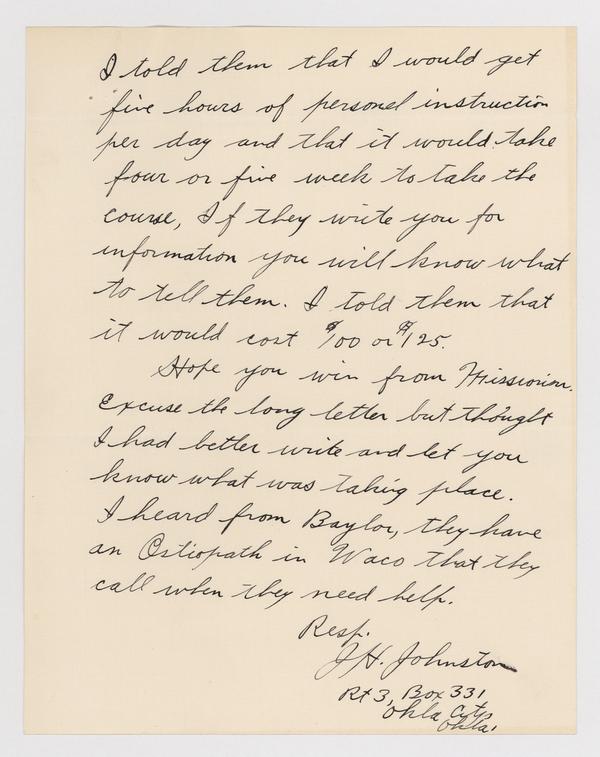 I told them that I would get
five hours of personel instruction
per day and that it would take
four or five week to take the
course, If they write you for
information you will know what
to tell them. I told them that
it would cost $100 or $125.
Hope you win from Missouri.
Excuse the long letter but thought
I had better write and let you
know what was taking place.
I heard from Baylor, they have
an Ostiopath in Waco that they
call when they need help.
Resp.
J.H. Johnston
Rt 3, Box 331
Okla City
Okla.